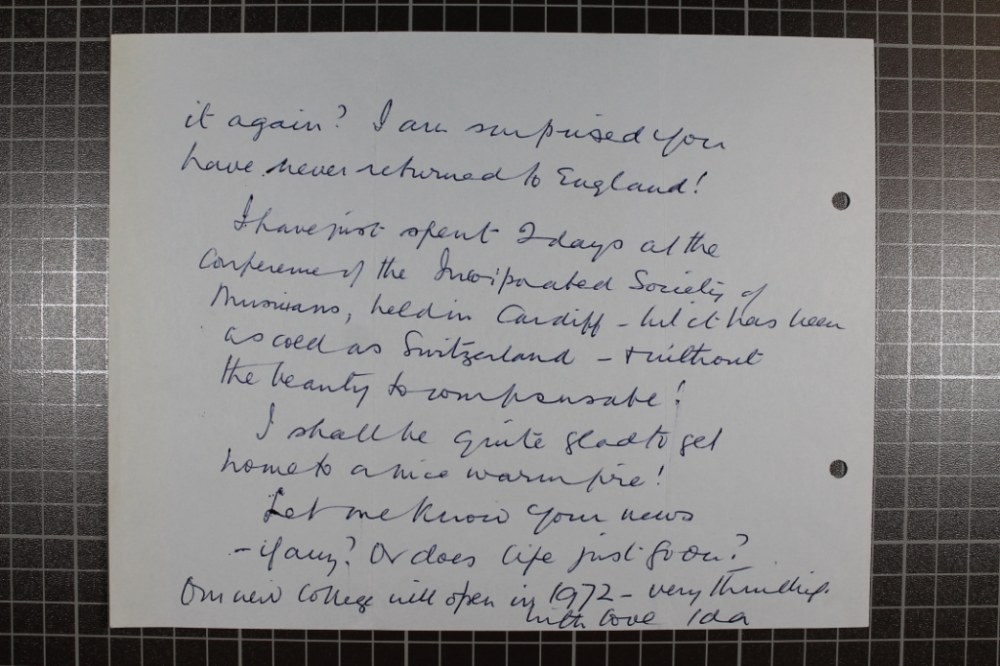 it again? I am surprised you
have never returned to England!
I have just spent 2 days at the
Conference of the Incorporated Society of
Musicians, held in Cardiff - but it has been
as cold as Switzerland - & without
the beauty to compensate!
I shall be quite glad to get
home to a nice warm fire!
Let me know your news
- if any? Or does life just go on?
Our new College will open in 1972 - very thrilling.
With love Ida